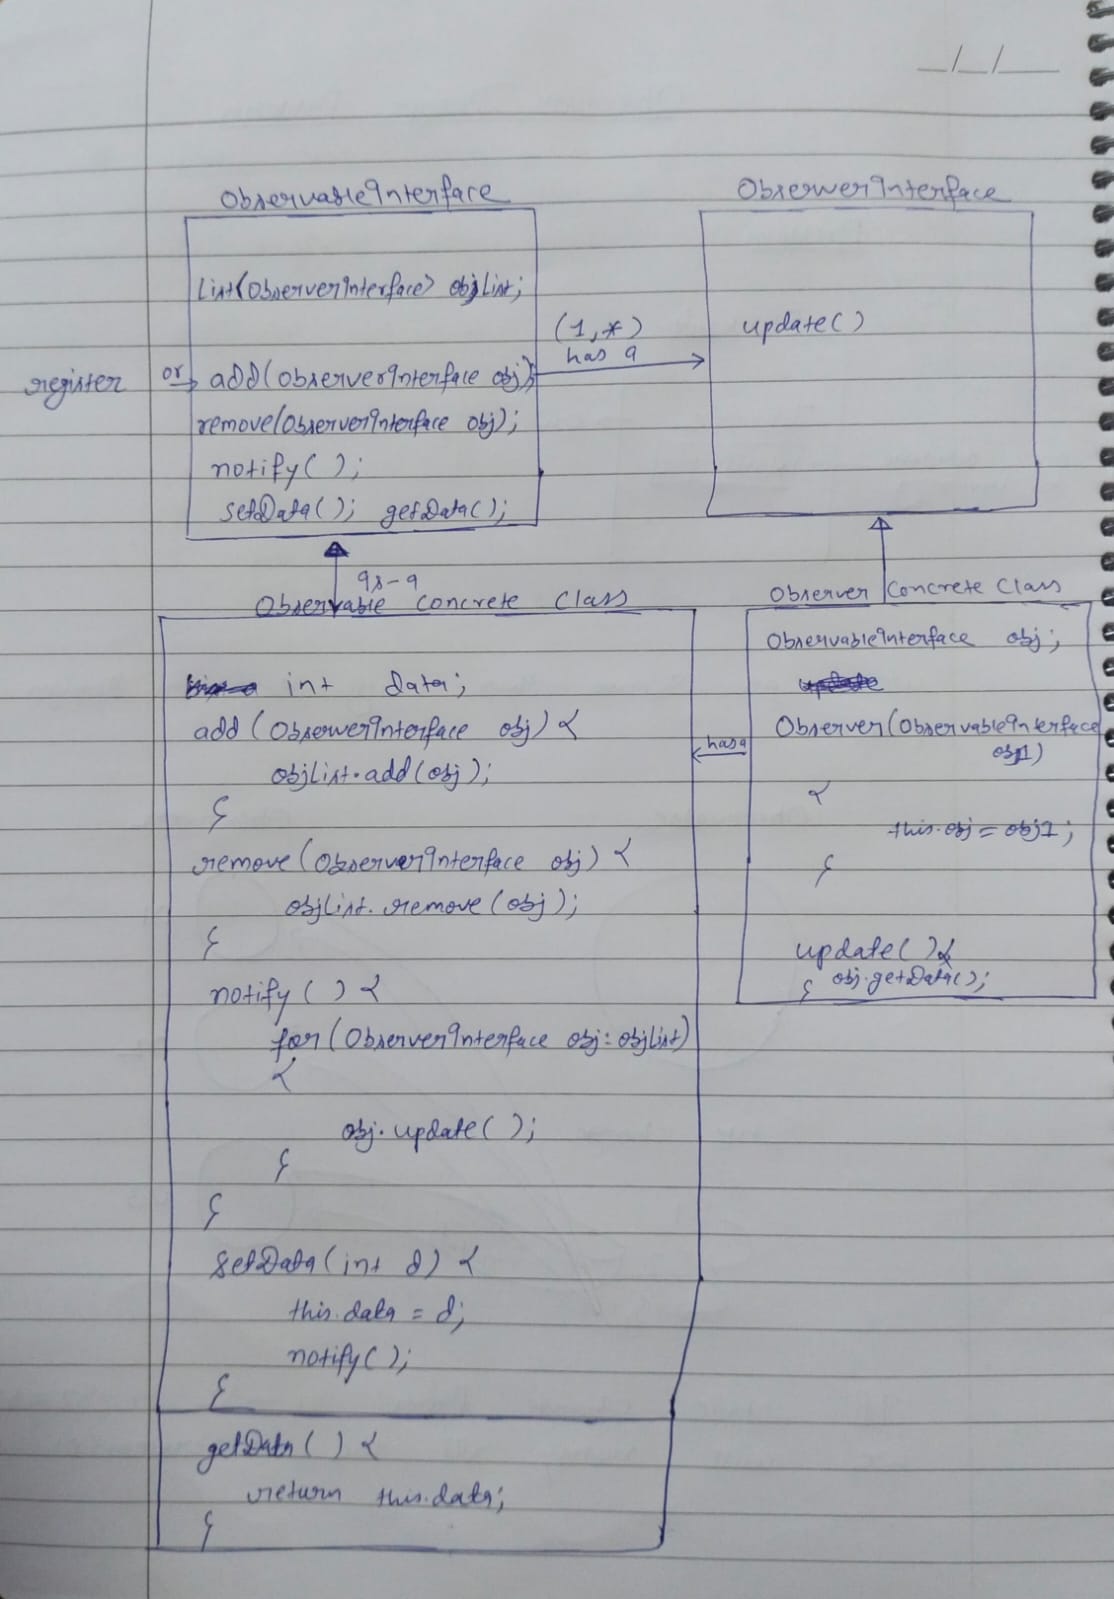 _/_/__
ObservableInterface
List<ObserverInterface> objList;
register or add(ObserverInterface obj);
remove(ObserverInterface obj);
notify();
setData(); getData();
(1,*)
has a
ObserverInterface
update()
is-a
Observable Concrete Class
int data;
add(ObserverInterface obj) {
objList.add(obj);
}
remove(ObserverInterface obj) {
objList.remove(obj);
}
notify() {
for(ObserverInterface obj: objList)
{
obj.update();
}
}
setData(int d) {
this.data = d;
notify();
}
getData() {
return this.data;
}
has a
Observer Concrete Class
ObservableInterface obj;
Observer(ObservableInterface
obj1)
{
this.obj = obj1;
}
update() {
} obj.getData();